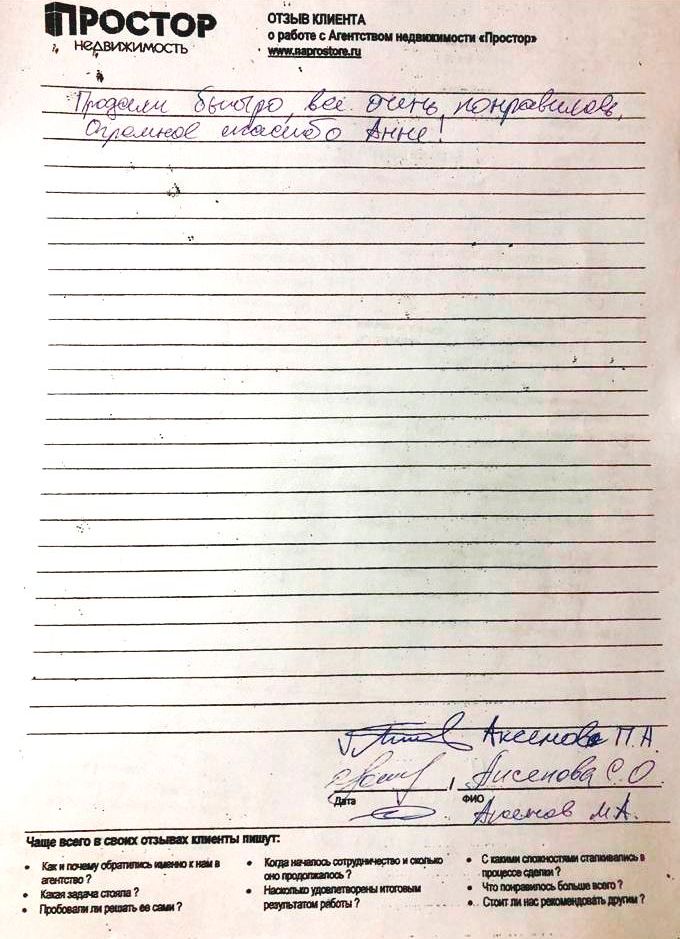 ПРОСТОР
НЕДВИЖИМОСТЬ
ОТЗЫВ КЛИЕНТА
о работе с Агентством недвижимости «Простор»
www.naprostore.ru
Продали быстро, всё очень понравилось,
Огромное спасибо Анне!
Аксенова П.А
Аксенова С.О.
/
Дата
ФИО
Аксенов М.А.
Чаще всего в своих отзывах клиенты пишут:
• Как и почему обратились именно к нам в
агентство ?
• Какая задача стояла ?
• Пробовали ли решать ее сами ?
• Когда началось сотрудничество и сколько
оно продолжалось ?
• Насколько удовлетворены итоговым
результатом работы ?
• С какими сложностями сталкивались в
процессе сделки ?
• Что понравилось больше всего ?
• Стоит ли нас рекомендовать другим ?